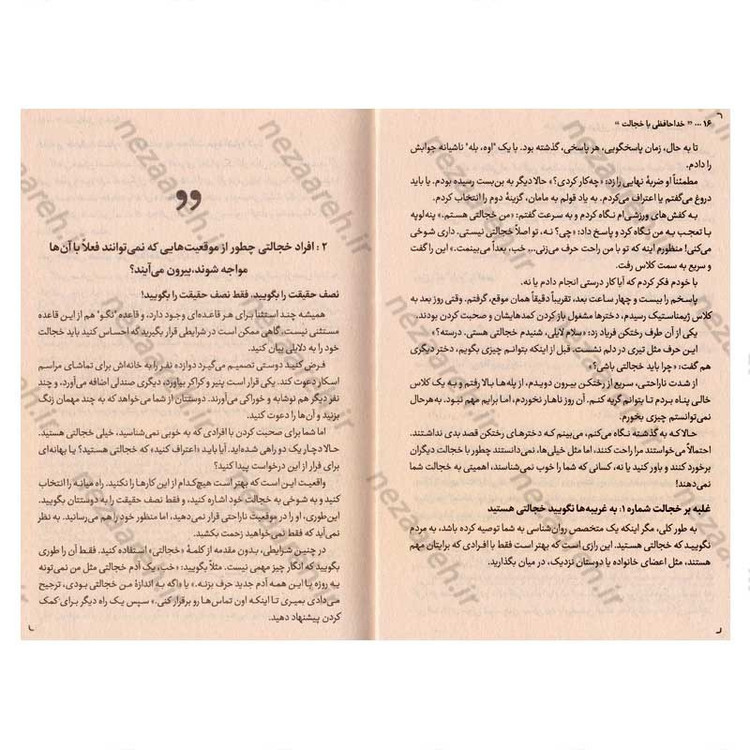 ۱۶ ... " خداحافظی با خجالت "
تا به حال، زمان پاسخگویی، هر پاسخی، گذشته بود. با یک "اوه، بله" ناشیانه جوابش
را دادم.
مطمئناً او ضربهٔ نهایی را زد: «چه‌کار کردی؟» حالا دیگر به بن‌بست رسیده بودم. یا باید
دروغ می‌گفتم یا اعتراف می‌کردم. به یاد قولم به مامان، گزینهٔ دوم را انتخاب کردم.
به کفش‌های ورزشی‌ام نگاه کردم و به سرعت گفتم: «من خجالتی هستم.» پنه‌لوپه
با تعجب به من نگاه کرد و پاسخ داد: «چی؟ نه، تو اصلاً خجالتی نیستی. داری شوخی
می‌کنی! منظورم اینه که تو با من راحت حرف می‌زنی... خب، بعداً می‌بینمت.» این را گفت
و سریع به سمت کلاس رفت.
با خودم فکر کردم که آیا کار درستی انجام دادم یا نه.
پاسخم را بیست و چهار ساعت بعد، تقریباً دقیقاً همان موقع، گرفتم. وقتی روز بعد به
کلاس ژیمناستیک رسیدم، دخترها مشغول باز کردن کمدهایشان و صحبت کردن بودند.
یکی از آن طرف رختکن فریاد زد: «سلام لایلی، شنیدم خجالتی هستی. درسته؟»
این حرف مثل تیری در دلم نشست. قبل از اینکه بتوانم چیزی بگویم، دختر دیگری
هم گفت: «چرا باید خجالتی باشی؟»
از شدت ناراحتی، سریع از رختکن بیرون دویدم، از پله‌ها بالا رفتم و به یک کلاس
خالی پناه بردم تا بتوانم گریه کنم. آن روز ناهار نخوردم، اما برایم مهم نبود. به‌هرحال
نمی‌توانستم چیزی بخورم.
حالا که به گذشته نگاه می‌کنم، می‌بینم که دخترهای رختکن قصد بدی نداشتند.
احتمالاً می‌خواستند مرا راحت کنند، اما مثل خیلی‌ها، نمی‌دانستند چطور با خجالت دیگران
برخورد کنند و باور کنید یا نه، کسانی که شما را خوب نمی‌شناسند، اهمیتی به خجالت شما
نمی‌دهند!
غلبه بر خجالت شماره ۱: به غریبه‌ها نگویید خجالتی هستید
به طور کلی، مگر اینکه یک متخصص روان‌شناسی به شما توصیه کرده باشد، به مردم
نگویید که خجالتی هستید. این رازی است که بهتر است فقط با افرادی که برایتان مهم
هستند، مثل اعضای خانواده یا دوستان نزدیک، در میان بگذارید.
۲ : افراد خجالتی چطور از موقعیت‌هایی که نمی‌توانند فعلاً با آن‌ها
مواجه شوند، بیرون می‌آیند؟
نصف حقیقت را بگویید. فقط نصف حقیقت را بگویید!
همیشه چند استثنا برای هر قاعده‌ای وجود دارد، و قاعدهٔ «نگو» هم از این قاعده
مستثنی نیست، گاهی ممکن است در شرایطی قرار بگیرید که احساس کنید باید خجالت
خود را به دلایلی بیان کنید.
فرض کنید دوستی تصمیم می‌گیرد دوازده نفر را به خانه‌اش برای تماشای مراسم
اسکار دعوت کند. یکی قرار است پنیر و کراکر بیاورد، دیگری صندلی اضافه می‌آورد، و چند
نفر دیگر هم نوشابه و خوراکی می‌آورند. دوستتان از شما می‌خواهد که به چند مهمان زنگ
بزنید و آن‌ها را دعوت کنید.
اما شما برای صحبت کردن با افرادی که به خوبی نمی‌شناسید، خیلی خجالتی هستید.
حالا دچار یک دو راهی شده‌اید. آیا باید «اعتراف کنید» که خجالتی هستید؟ یا بهانه‌ای
برای فرار از این درخواست پیدا کنید؟
واقعیت این است که بهتر است هیچ‌کدام از این کارها را نکنید. راه میانه را انتخاب
کنید و به شوخی به خجالت خود اشاره کنید، و فقط نصف حقیقت را به دوستتان بگویید.
این‌طوری، او را در موقعیت ناراحتی قرار نمی‌دهید، اما منظور خود را هم می‌رسانید. به نظر
می‌آید که فقط نمی‌خواهید زحمت بکشید.
در چنین شرایطی، بدون مقدمه از کلمهٔ «خجالتی» استفاده کنید. فقط آن را طوری
بگویید که انگار چیز مهمی نیست. مثلاً بگویید: «خب، یک آدم خجالتی مثل من نمی‌تونه
یه روزه با این همه آدم جدید حرف بزنه.» یا «اگه به اندازهٔ من خجالتی بودی، ترجیح
می‌دادی بمیری تا اینکه اون تماس‌ها رو برقرار کنی.» سپس یک راه دیگر برای کمک
کردن پیشنهاد دهید.
nezaareh.ir